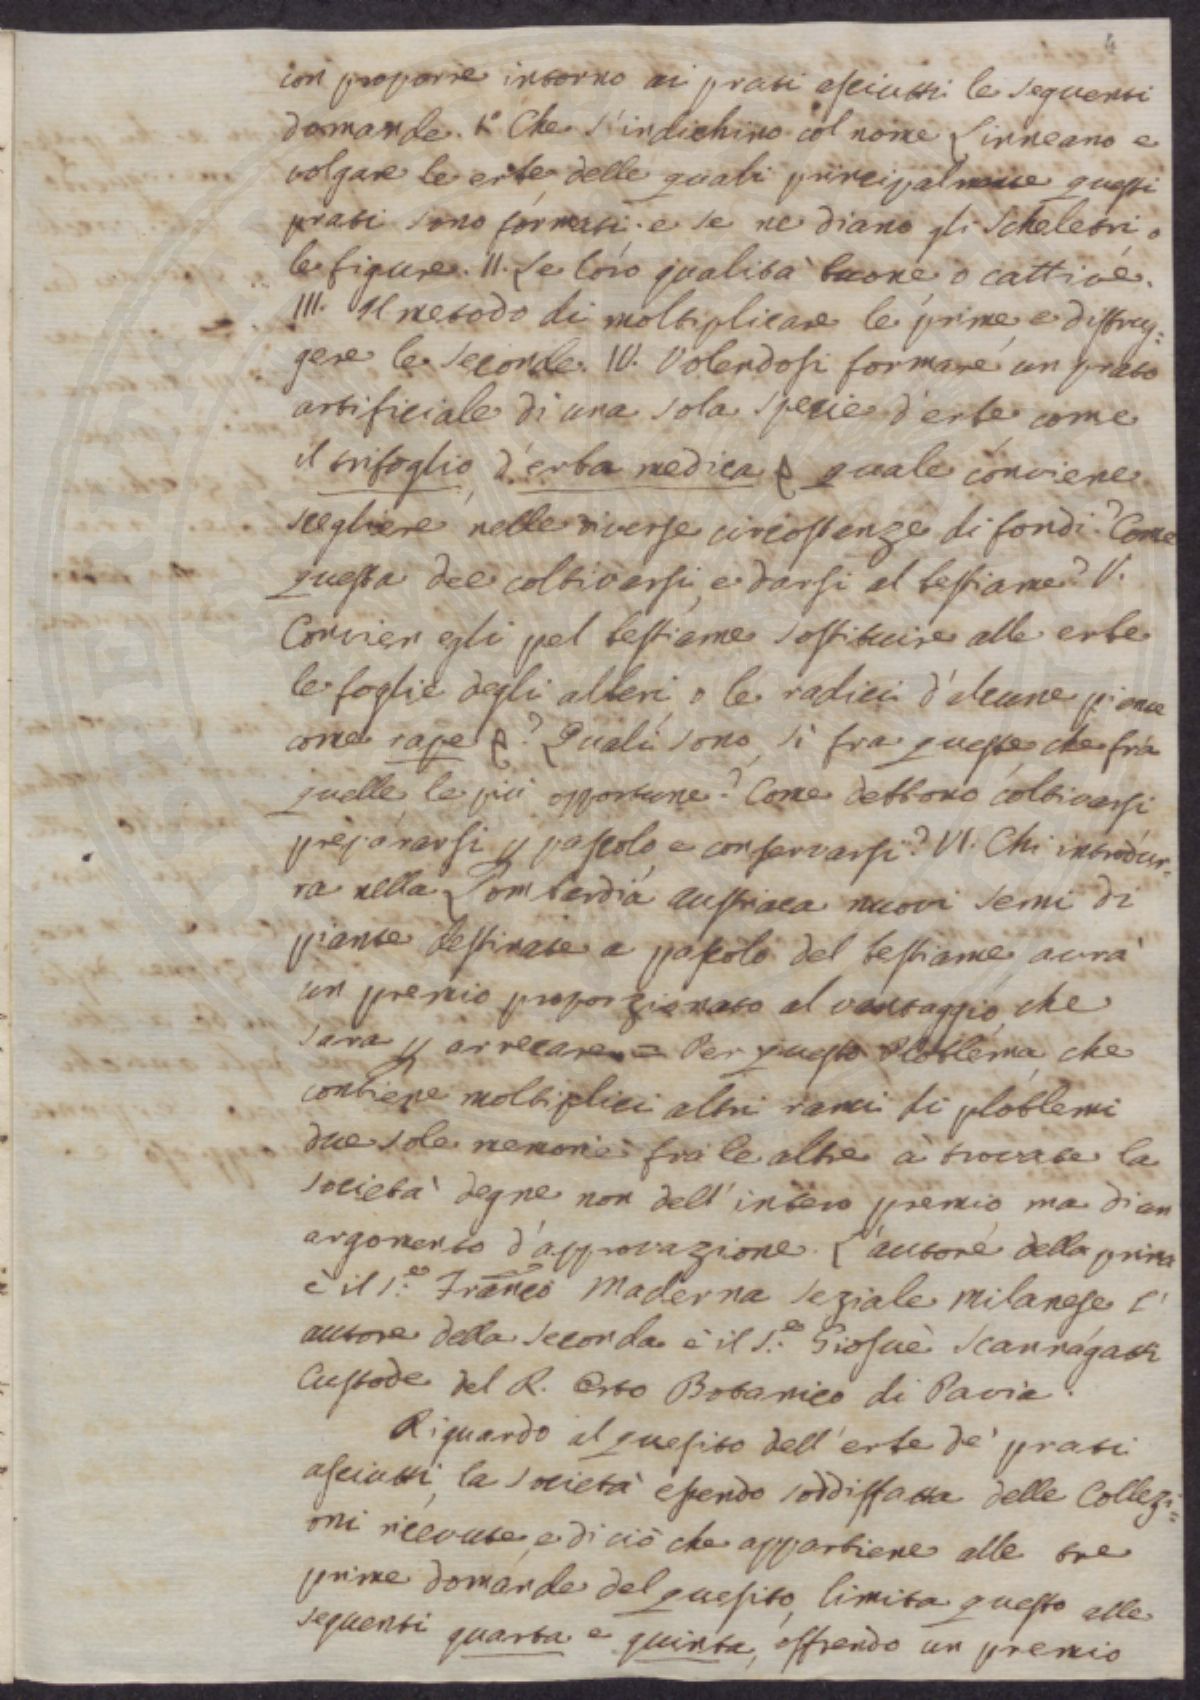 4
con proporre intorno ai prati asciutti le seguenti
domande. I.° Che s'indichino col nome Linneano e
volgare le erbe delle quali principalmente questi
prati sono formati: e se ne diano gli scheletri o
le figure. II. Le loro qualità buone o cattive.
III. Il metodo di moltiplicare le prime, e distrug=
gere le seconde. IV. Volendosi formare un prato
artificiale di una sola specie d'erbe come
il trifoglio, d'erba medica & quale conviene
scegliere nelle diverse circostanze di fondi? Come
questa dee coltivarsi, e darsi al bestiame? V.
Convien egli pel bestiame sostituire alle erbe
le foglie degli alberi, o le radici d'alcune piante
come rape &? Quali sono, sì fra queste, che fra
quelle le più opportune? Come debbono coltivarsi
prepararsi p pascolo e conservarsi? VI. Chi introdur-
rà nella Lombardia austriaca nuovi semi di
piante destinate a pascolo del bestiame avrà
un premio proporzionato al vantaggio, che
sarà p arrecare = Per questo Problema, che
contiene moltiplici altri rami di ploblemi
due sole memorie fra le altre à trovate la
società degne non dell'intero premio, ma di un
argomento d'approvazione. L'autore della prima
è il S.e Franco Maderna seziale milanese l'
autore della seconda è il S.e Giosuè Scannagatti
Custode del R. Orto Botanico di Pavia.
Riguardo al quesito dell'erbe de' prati
asciutti, la società essendo soddisfatta delle Collezi=
oni ricevute, e di ciò che appartiene alle tre
prime domande del quesito, limita questo alle
seguenti quarta e quinta, offrendo un premio